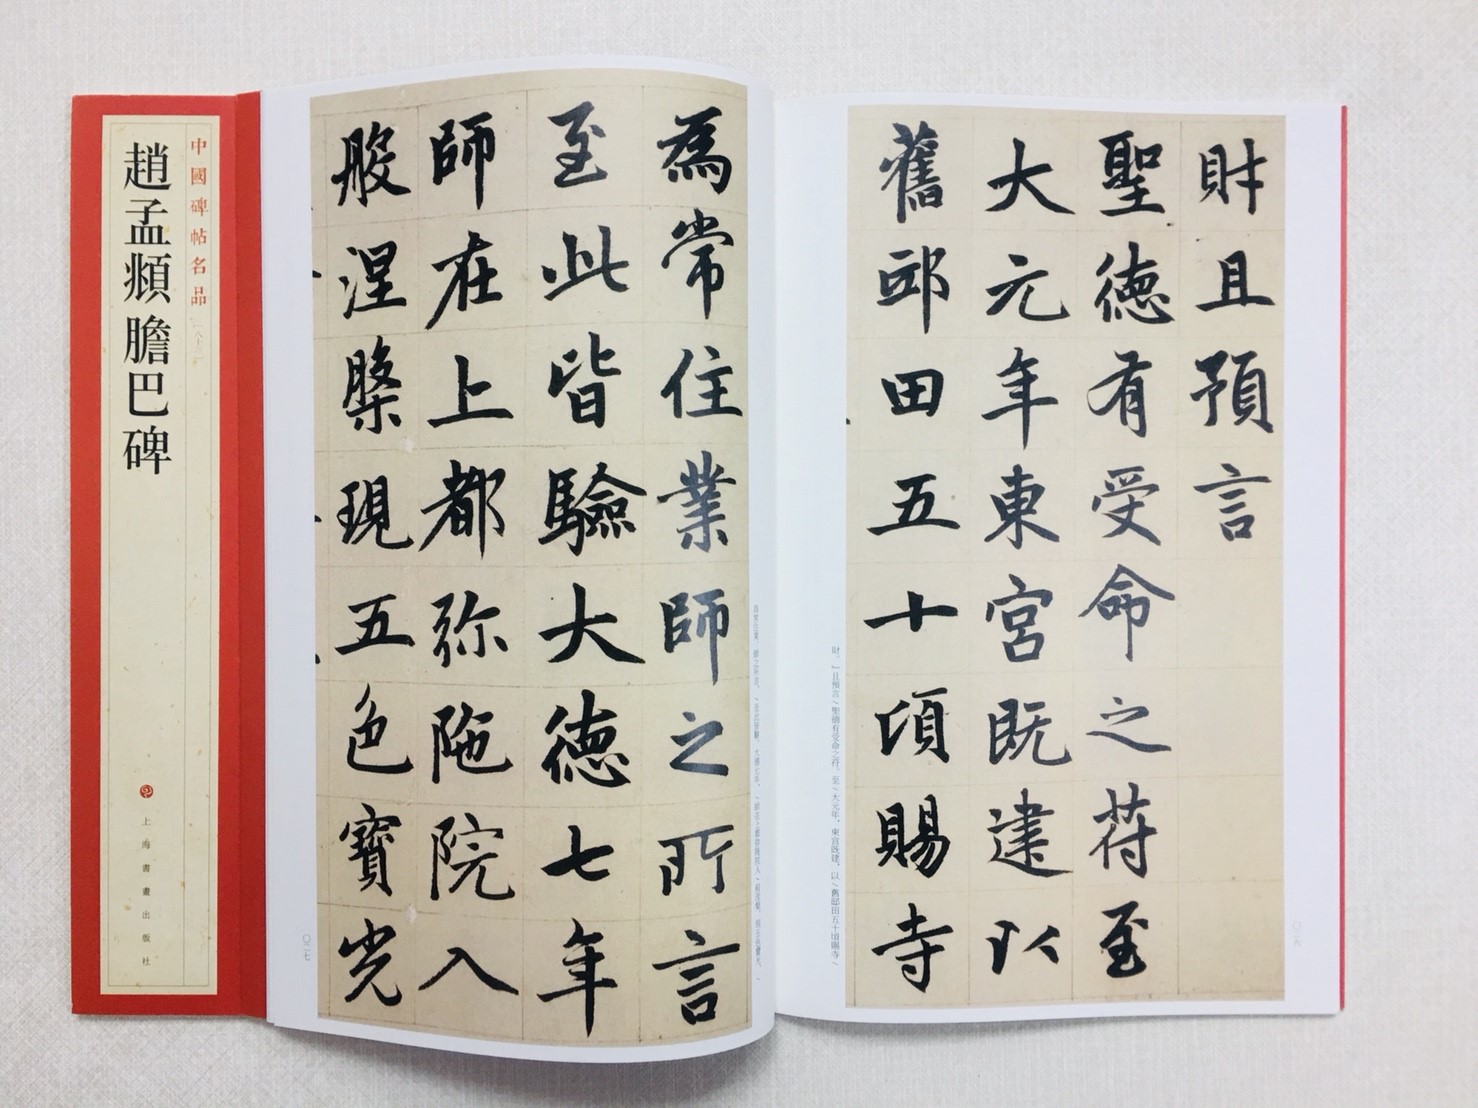 中國碑帖名品
趙孟頫膽巴碑
上海書畫出版社
財且預言
聖德有受命之苻至
大元年東宮既建以
舊邱田五十頃賜寺
財。」且預言/聖德有受命之符。至/大元年，東宮既建，以/舊邸田五十頃賜寺/
為常住業師之所言
至此皆驗大德七年
師在上都弥陁院入
般涅槃現五色寶光
〇二七